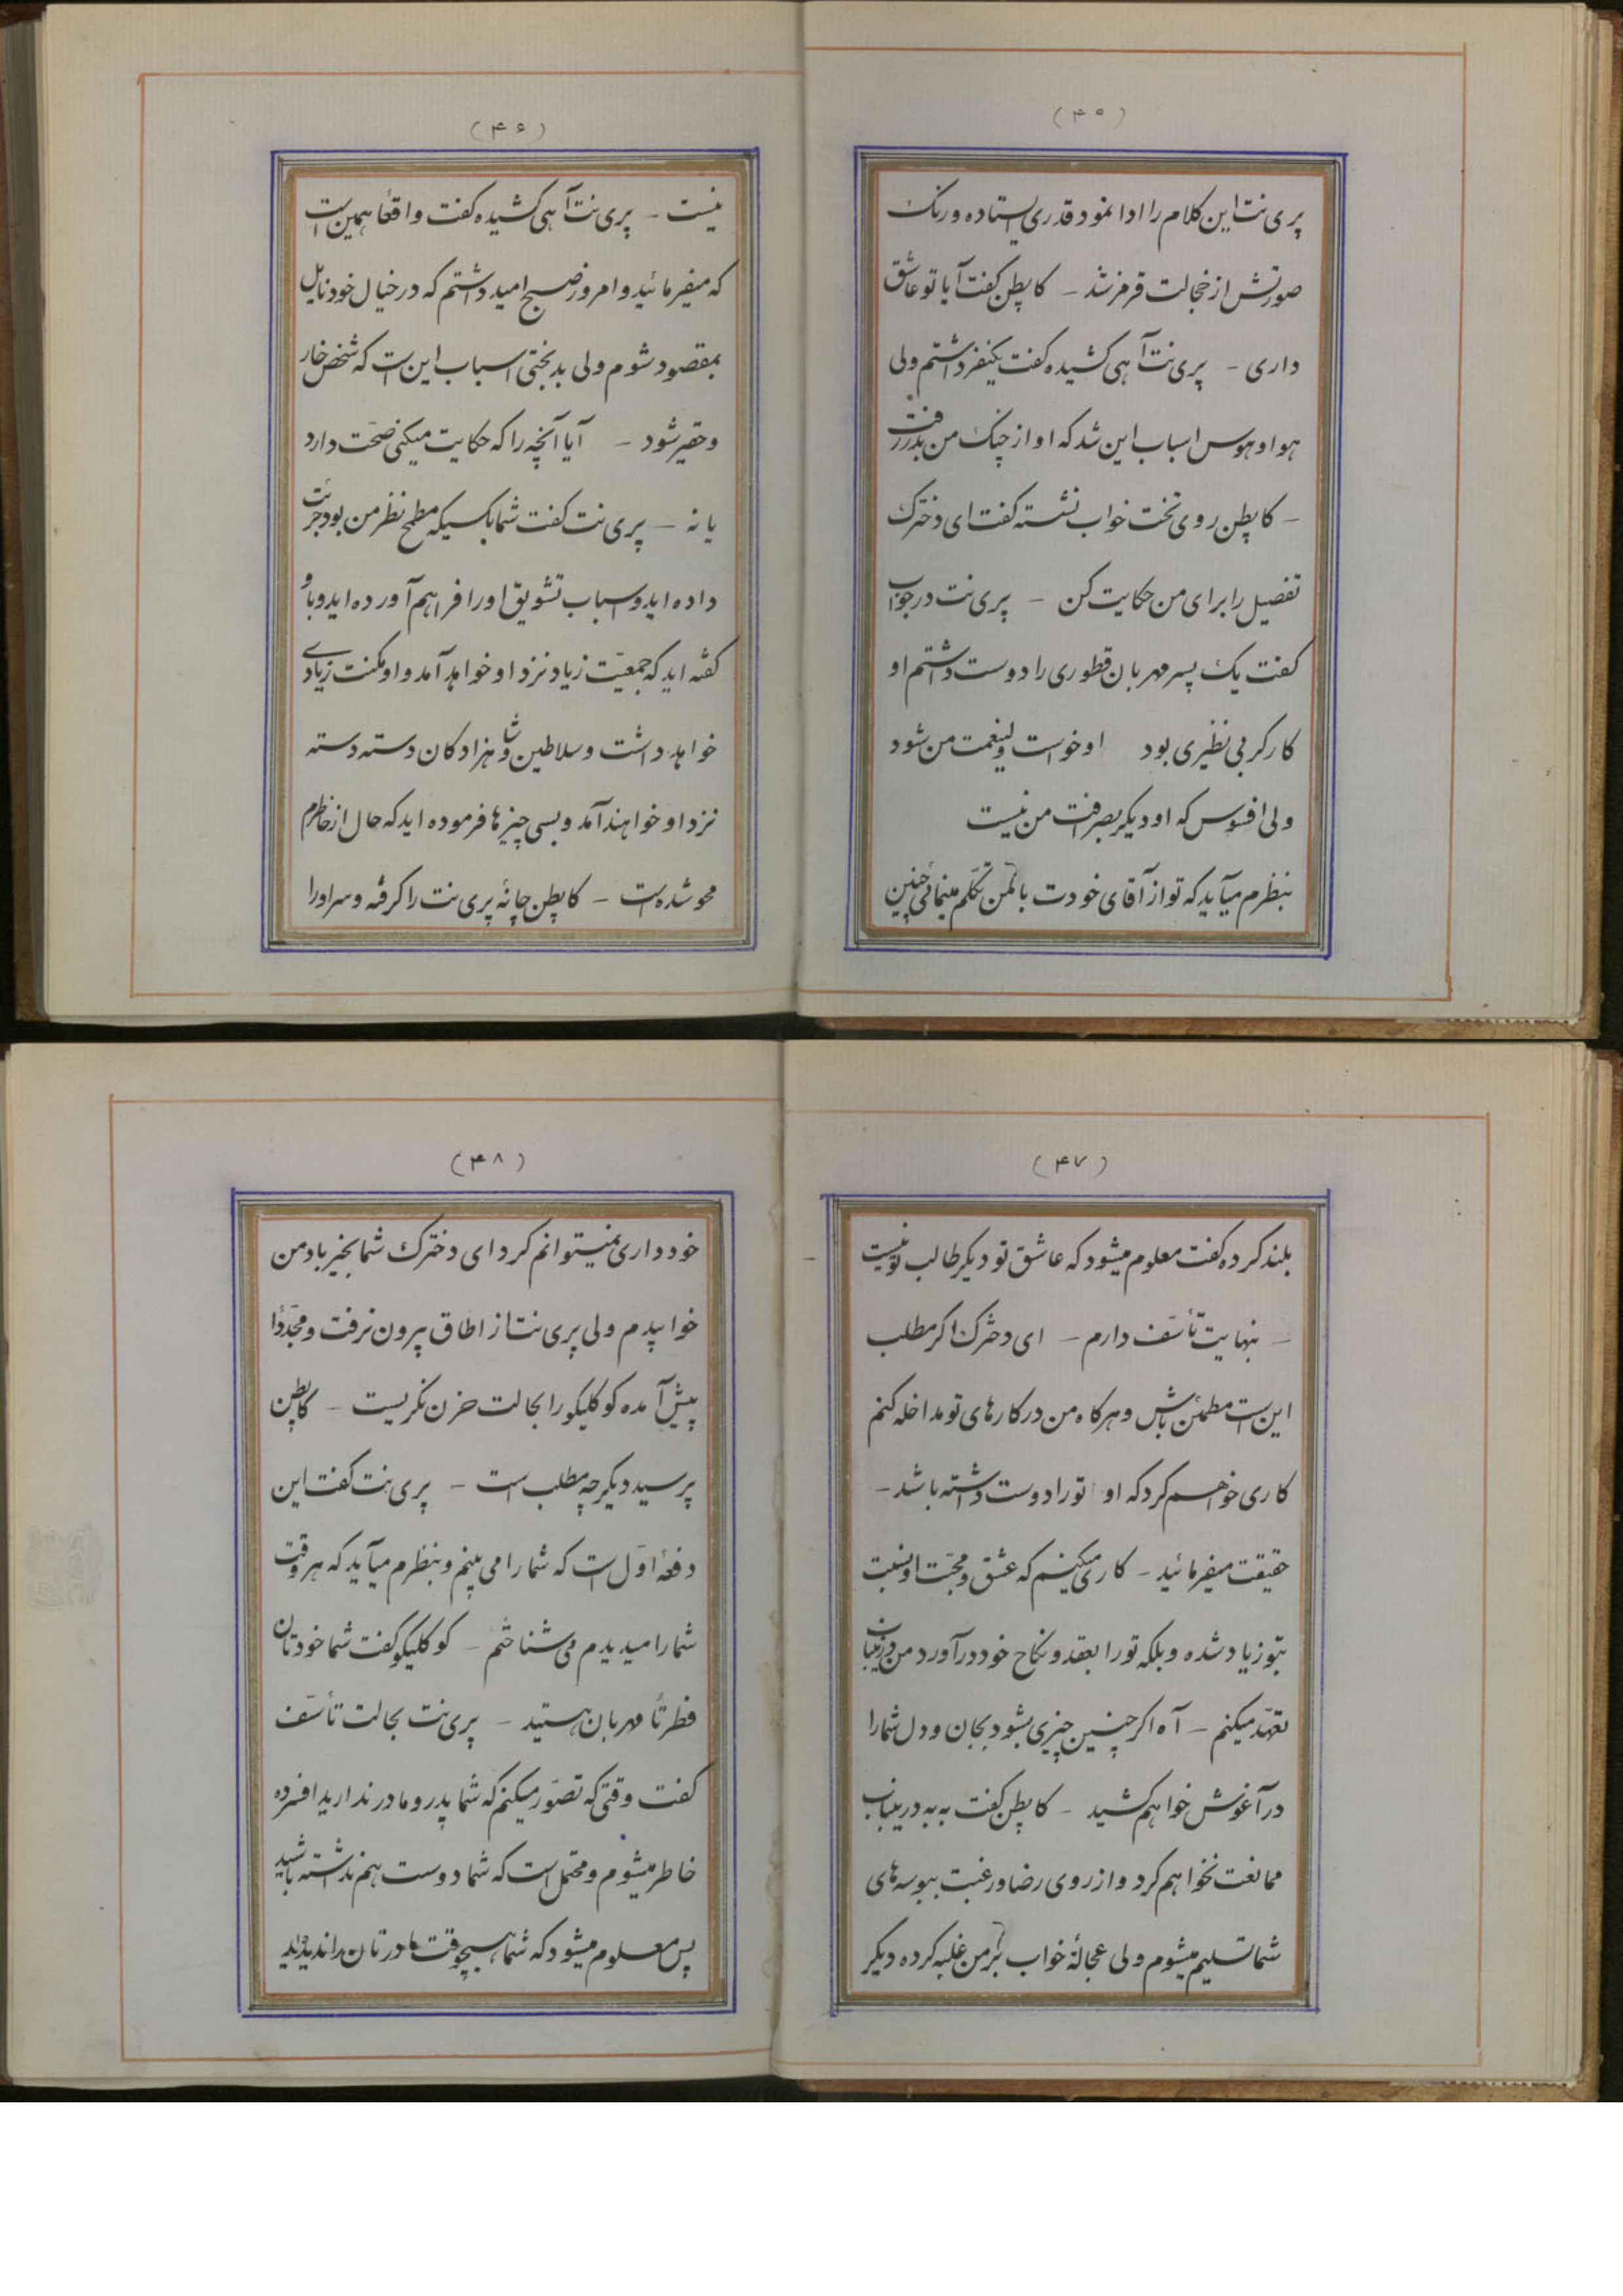 (۴۵)
پری نت این کلام را ادا نمود قدری ایستاده و رنگ
صورتش از خجالت قرمز شد – کاپطن گفت آیا تو عاشق
داری – پری نت آهی کشیده گفت یکنفر داشتم ولی
هوا و هوس اسباب این شد که او از چنگ من بدر رفت
– کاپطن روی تخت خواب نشسته گفت ای دخترک
تفصیل را برای من حکایت کن – پری نت در جواب
گفت یک پسر مهربان قطوری را دوست داشتم او
کارگر بی نظیری بود او خواست ولینعمت من شود
ولی افسوس که او دیگر بصرافت من نیست
بنظرم میآید که تو از آقای خودت با من تکلم مینمائی چنین
(۴۶)
نیست – پری نت آهی کشیده گفت واقعاً همین است
که میفرمائید و امروز صبح امید داشتم که در خیال خود نایل
بمقصود شوم ولی بدبختی اسباب این است که شخص خار
و حقیر شود – آیا آنچه را که حکایت میکنی صحّت دارد
یا نه – پری نت گفت شما بکسیکه مطمح نظر من بود جرئت
داده اید و اسباب تشویق او را فراهم آورده اید و باو
گفته اید که جمعیّت زیاد نزد او خواهد آمد و او مکنت زیادی
خواهد داشت و سلاطین و شاهزادگان دسته دسته
نزد او خواهند آمد و بسی چیزها فرموده اید که حال از خاطرم
محو شده است – کاپطن چانهٔ پری نت را گرفته و سر او را
(۴۷)
بلند کرده گفت معلوم میشود که عاشق تو دیگر طالب تو نیست
– نهایت تأسّف دارم – ای دخترک اگر مطلب
این است مطمئن باش و هرگاه من در کارهای تو مداخله کنم
کاری خواهم کرد که او تو را دوست داشته باشد –
حقیقت میفرمائید – کاری میکنیم که عشق و محبّت او نسبت
بتو زیاد شده و بلکه تو را بعقد و نکاح خود درآورد من در اینباب
تعهّد میکنم – آه اگر چنین چیزی بشود بجان و دل شما را
در آغوش خواهم کشید – کاپطن گفت به به در اینباب
ممانعت نخواهم کرد و از روی رضا و رغبت ببوسه های
شما تسلیم میشوم ولی عجالةً خواب بر من غلبه کرده دیگر
(۴۸)
خودداری نمیتوانم کرد ای دخترک شما بخیر باد من
خوابیدم ولی پری نت از اطاق بیرون نرفت و مجدّداً
پیش آمده کوکلیکو را بحالت حزن نگریست – کاپطن
پرسید دیگر چه مطلب است – پری نت گفت این
دفعهٔ اوّل است که شما را می بینم و بنظرم میآید که هر وقت
شما را میدیدم می شناختم – کوکلیکو گفت شما خودتان
فطرتاً مهربان هستید – پری نت بحالت تأسّف
گفت وقتی که تصوّر میکنم که شما پدر و مادر ندارید افسرده
خاطر میشوم و محتمل است که شما دوست هم نداشته باشید
پس معلوم میشود که شما هیچوقت مادرتان را ندیدید